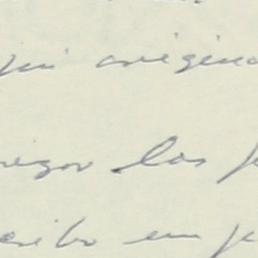 mi origina
regar las p
cribo en p